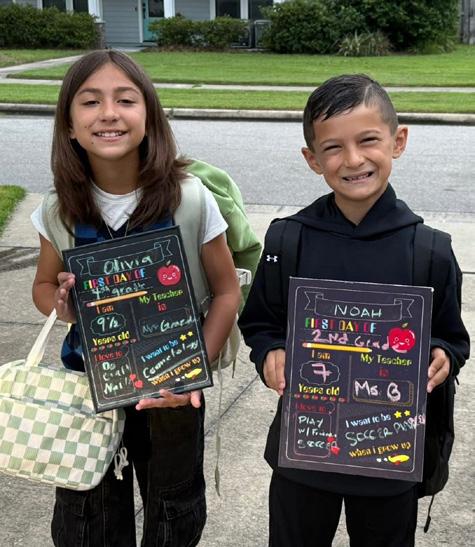 Olivia
FIRST DAY OF
4th grade
I am
My Teacher
is
9½
Years old
I love to
Do
Nails
I want to be
when I grow up
NOAH
FIRST DAY OF
2nd Grade
I am
My Teacher
is
7
Years old
Ms. G
I love to
Play
w/ Friends
SOCCER
I want to be
SOCCER
when I grow up